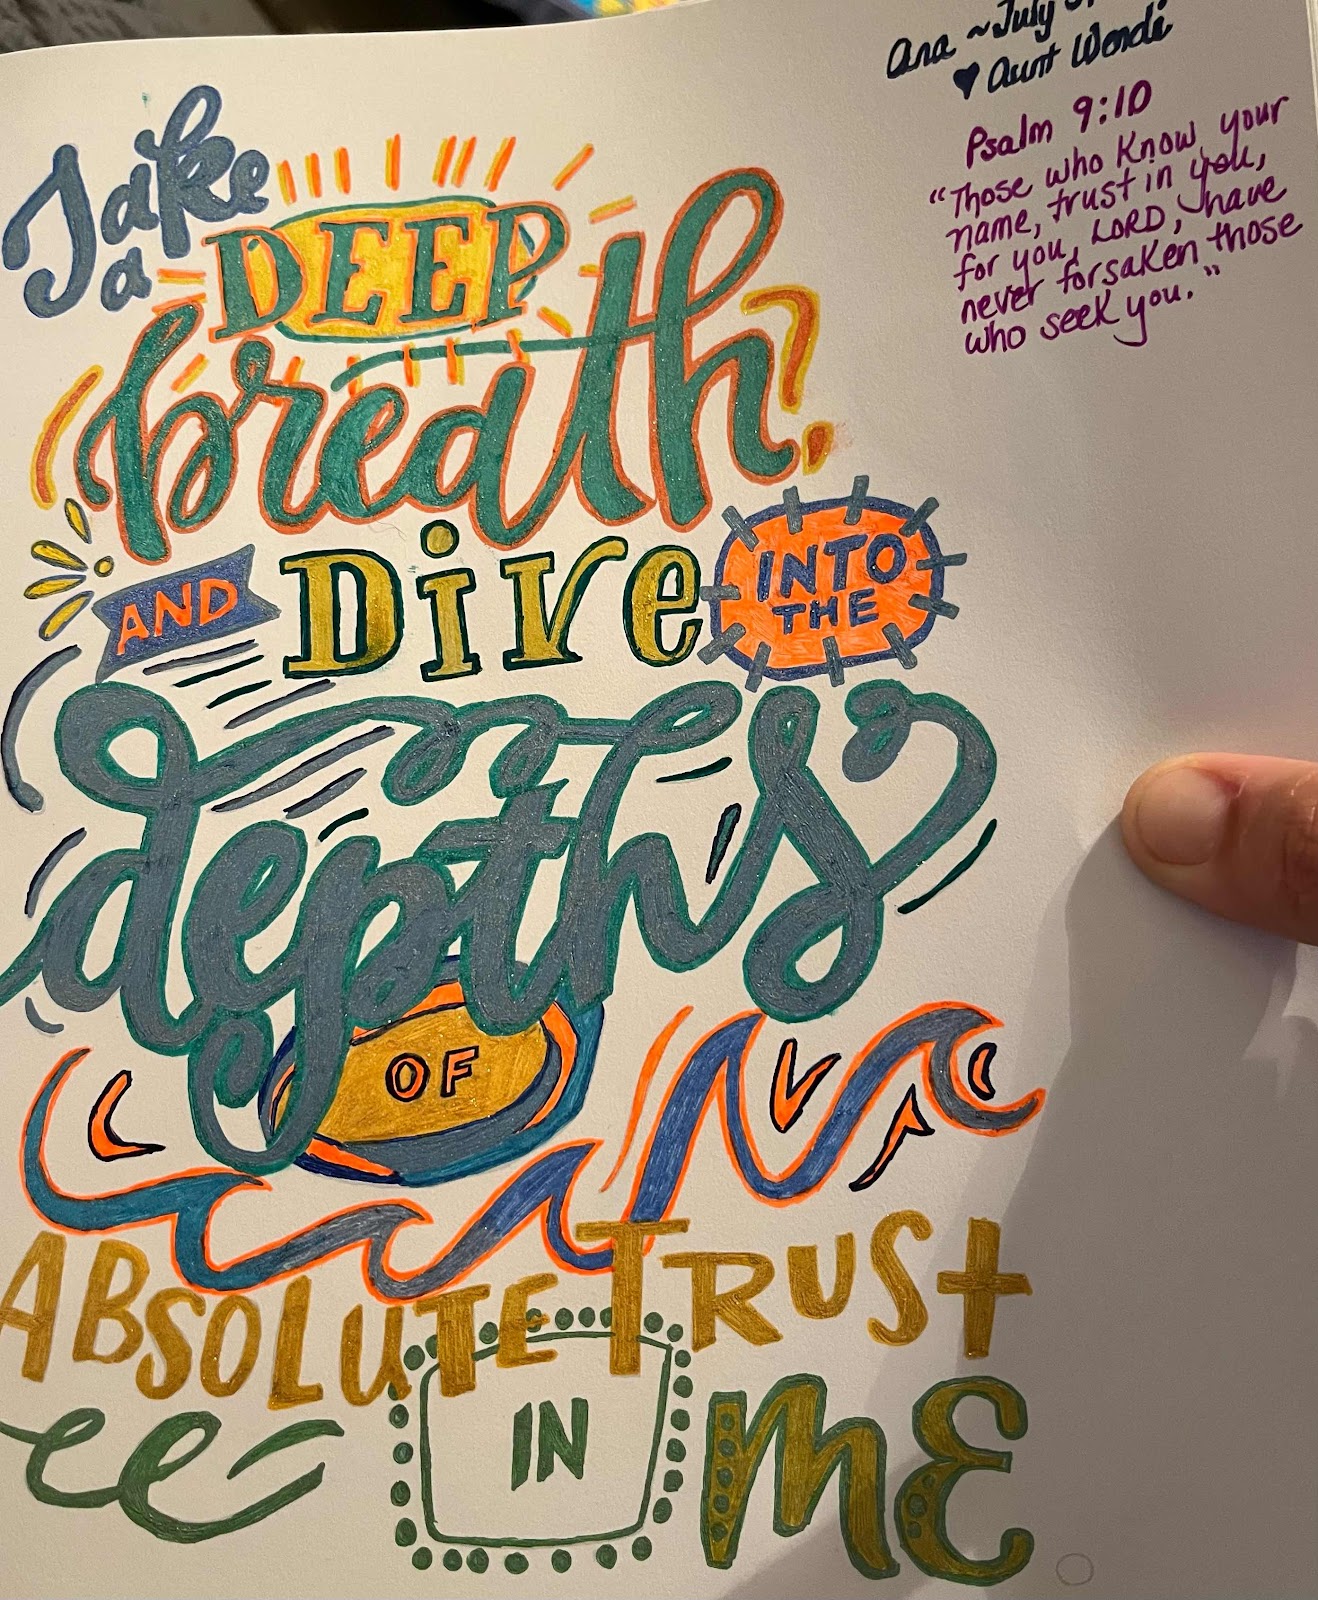 Take
a
DEEP
breath,
AND Dive INTO
THE
depths
OF
ABSOLUTE TRUST
IN ME
Ana ~ July
♥ Aunt Wendi
Psalm 9:10
"Those who know your
name, trust in you,
for you, LORD, have
never forsaken those
who seek you."